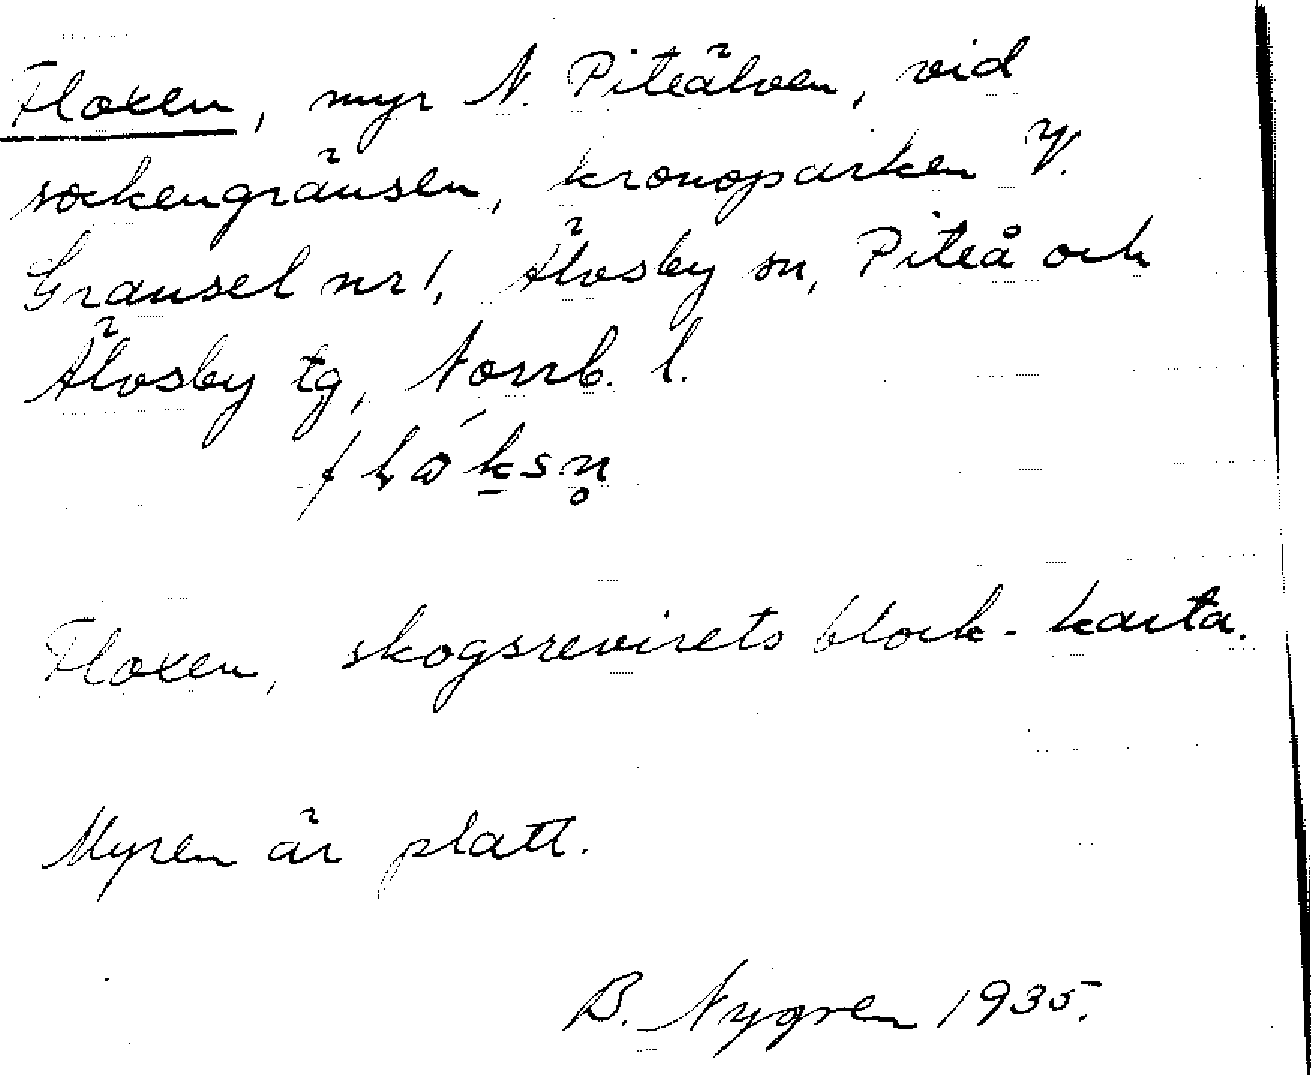 Floxen, myr N. Piteälven, vid
sockengränsen, kronoparken V.
Gransel nr 1, Älvsby sn, Piteå och
Älvsby tg, Norrb. l.
Floxen, skogsrevirets block-karta.
Myren är platt.
B. Nygren 1935.